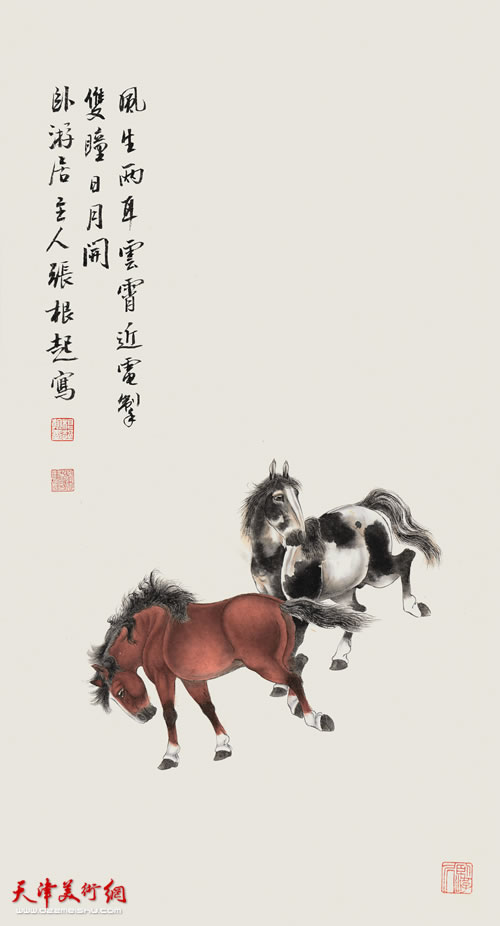 風生兩耳雲霄近電掣
雙瞳日月開
卧游居主人張根起寫
天津美術網